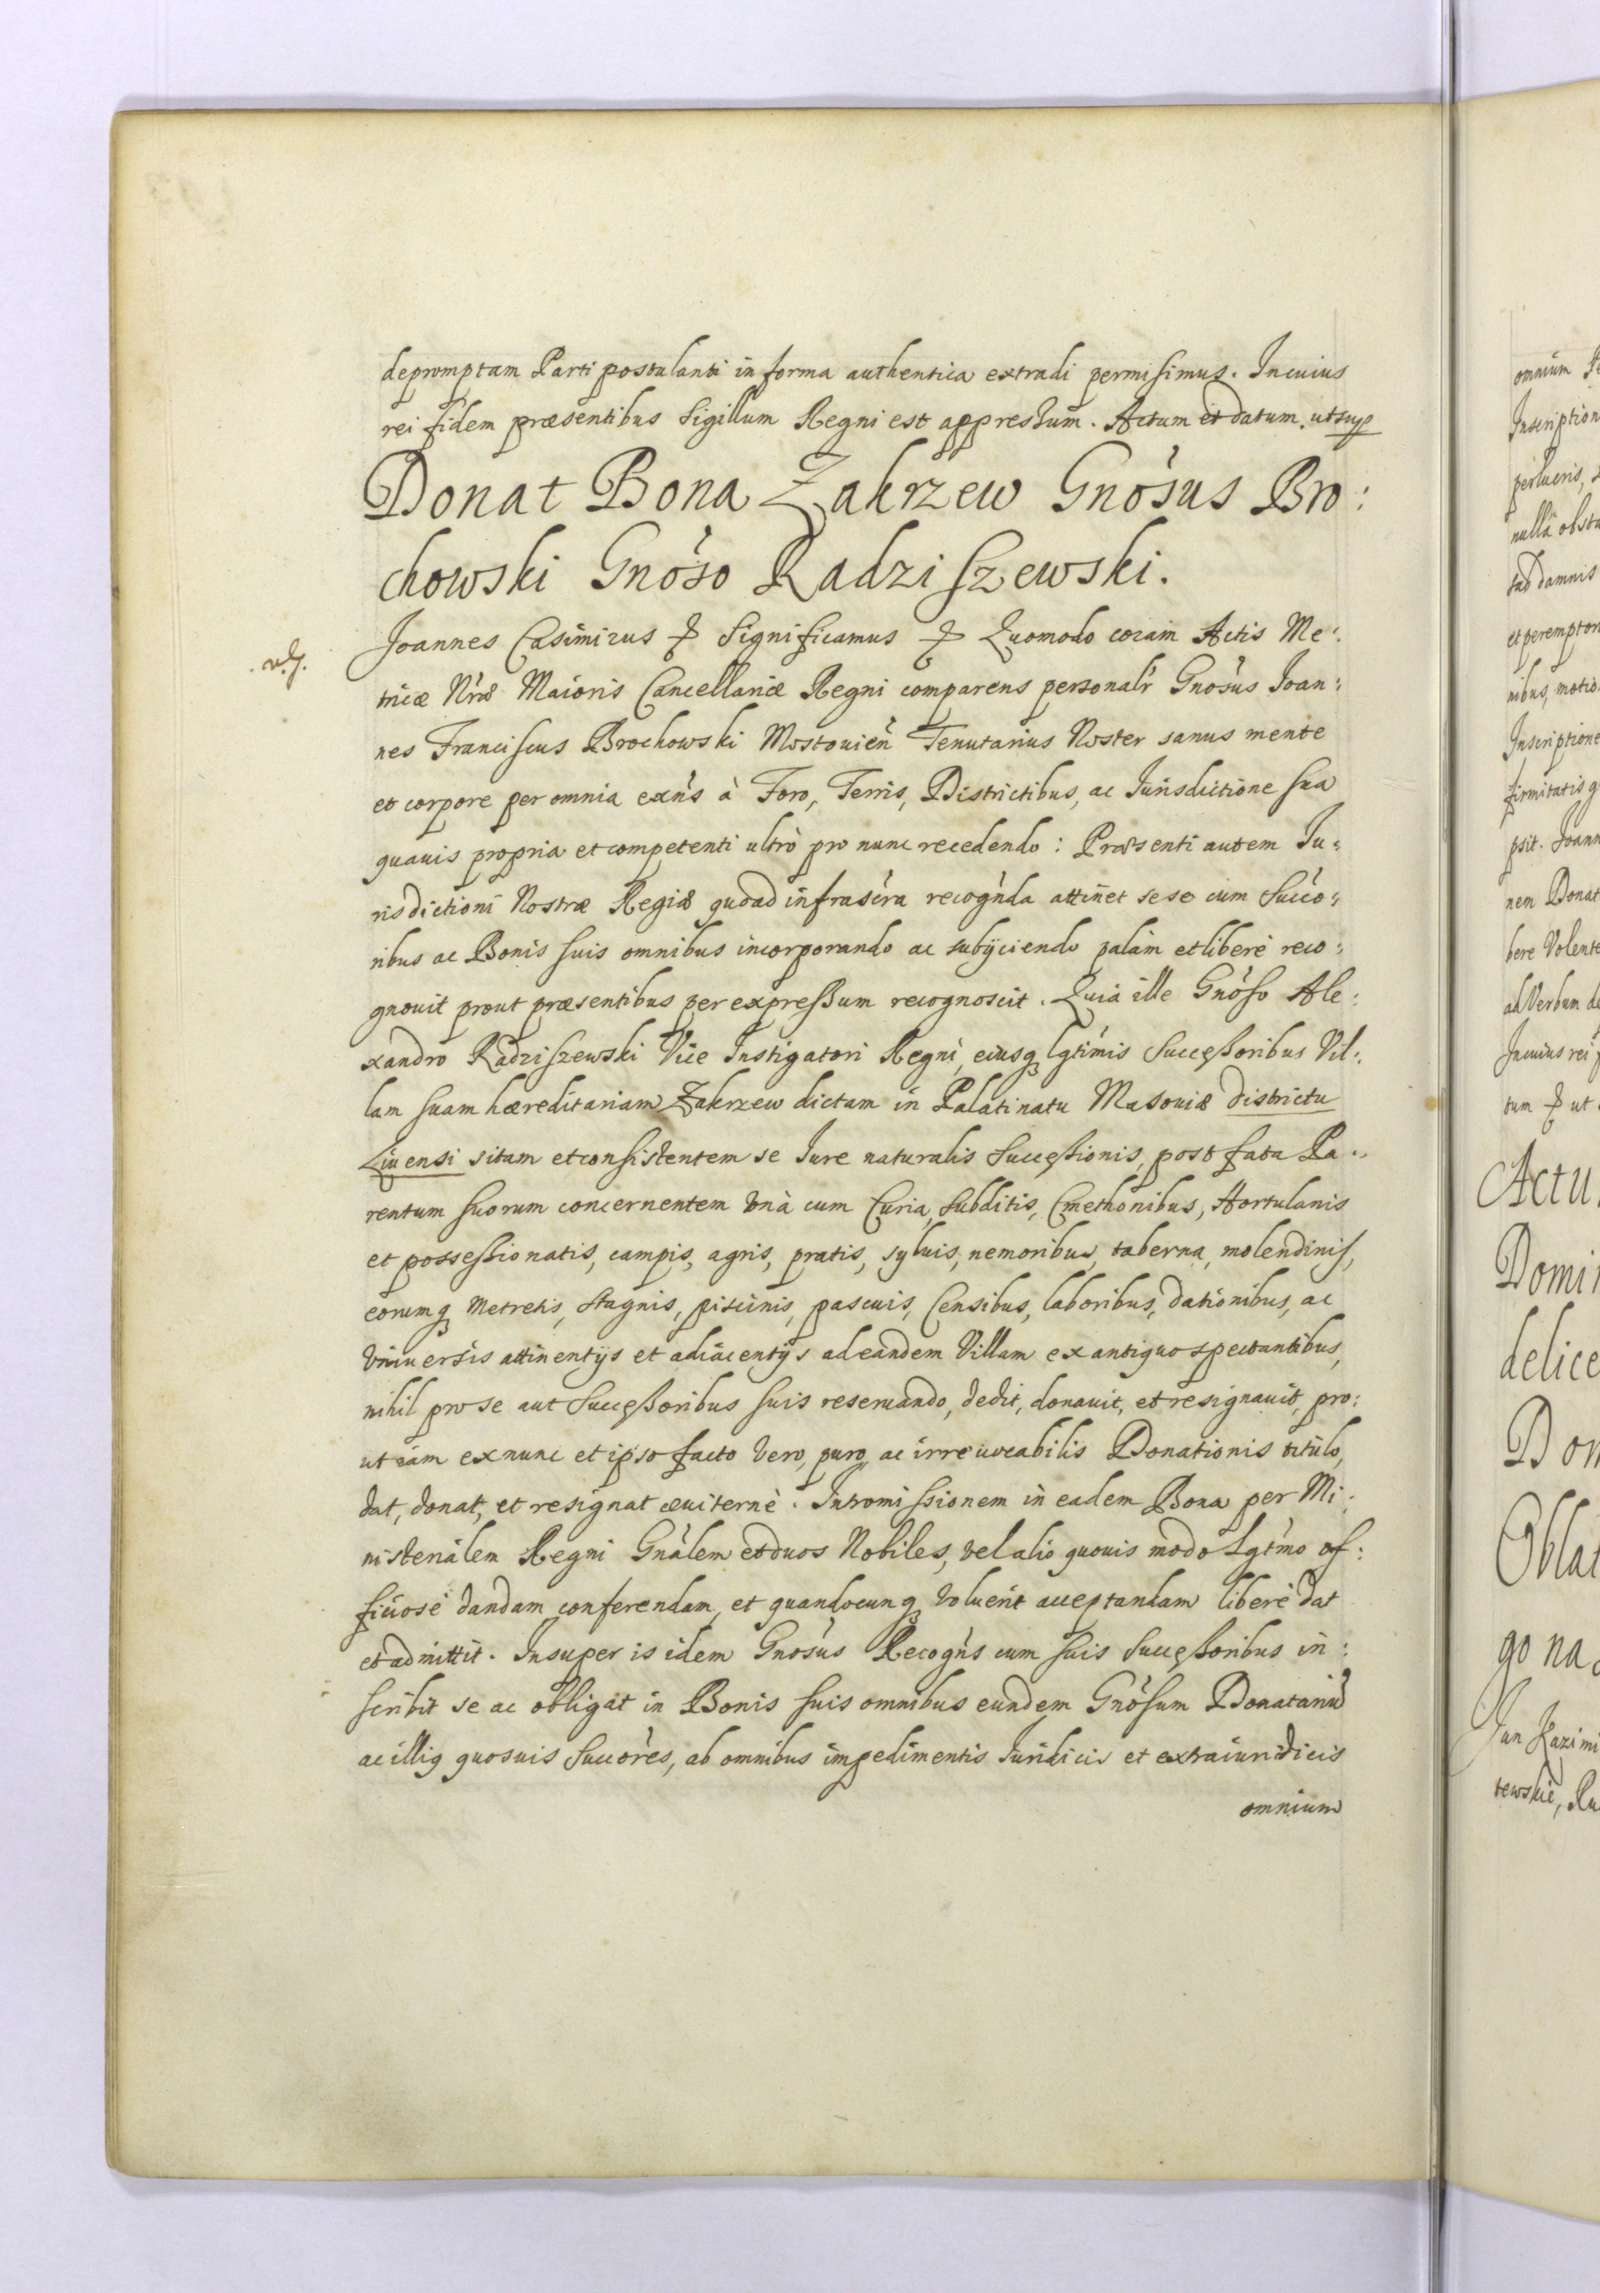 depromptam Parti postulanti in forma authentica extradi permisimus. In cuius
rei fidem præsentibus Sigillum Regni est appressum. Actum et datum ut sup
Donat Bona Zakrzew Gnosus Bro:
chowski Gnoso Radziszewski.
Joannes Casimirus Significamus Quomodo coram Actis Me:
tricæ Nræ Maioris Cancellariæ Regni comparens personalr Gnosus Joan:
nes Franciscus Brochowski Mostouien Tenutarius Noster sanus mente
et corpore per omnia exns à Foro, Terris, Districtibus, ac Jurisdictione sua
quauis propria et competenti ultrò pro nunc recedendo: Præsenti autem Ju:
risdictioni Nostræ Regiæ quoad infrascra recognda attinet sese cum Succo:
ribus ac Bonis suis omnibus incorporando ac subijciendo palàm et liberè reco:
gnouit prout præsentibus per expressum recognoscit. Quia ille Gnoso Ale:
xandro Radziszewski Vice Instigatori Regni, eiusq lgtimis Successoribus Vil:
lam suam hæreditariam Zakrzew dictam in Palatinatu Masouiæ districtu
Liuensi sitam et consistentem se Jure naturalis Successionis, post fata Pa:
rentum suorum concernentem Vnà cum Curia, Subditis, Cmethonibus, Hortulanis
et possessionatis, campis, agris, pratis, syluis, nemoribus, taberna, molendinis,
eorumq Metretis, Stagnis, piscinis, pascuis, Censibus, laboribus, dationibus, ac
Vniuersis attinentijs et adiacentijs ad eandem Villam ex antiquo spectantibus,
nihil pro se aut Successoribus suis reseruando, dedit, donauit, et resignauit, pro:
ut iam ex nunc et ipso facto Vero, puro, ac irreuocabilis Donationis titulo,
dat, donat, et resignat æuiternè. Intromissionem in eadem Bona per Mi:
nisterialem Regni Gnalem et duos Nobiles, vel alio quouis modo Lgtmo of:
ficiosè dandam conferendam, et quandocunq Voluerit acceptandam liberè dat
et admittit. Insuper is idem Gnosus Recogns cum suis Successoribus in:
scribit se ac obligat in Bonis suis omnibus eundem Gnosum Donatariu
ac illiq quosuis Succores, ab omnibus impedimentis Juridicis et extraiuridicis
omnium